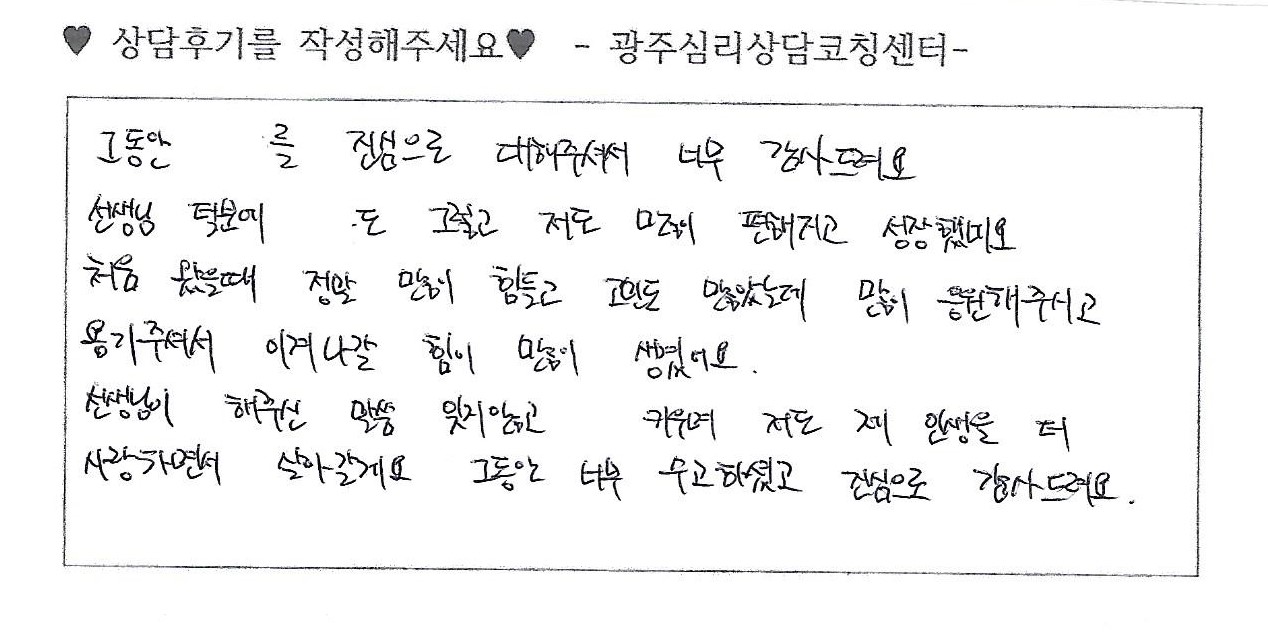 ♥ 상담후기를 작성해주세요♥ - 광주심리상담코칭센터-
그동안 를 진심으로 대해주셔서 너무 감사드려요
선생님 덕분에 도 그렇고 저도 많이 편해지고 성장했네요
처음 왔을때 정말 많이 힘들고 고민도 많았는데 많이 응원해주시고
용기주셔서 이겨나갈 힘이 많이 생겼어요.
선생님이 해주신 말씀 잊지않고 키워며 저도 제 인생을 더
사랑하면서 살아갈게요 그동안 너무 수고하셨고 진심으로 감사드려요.